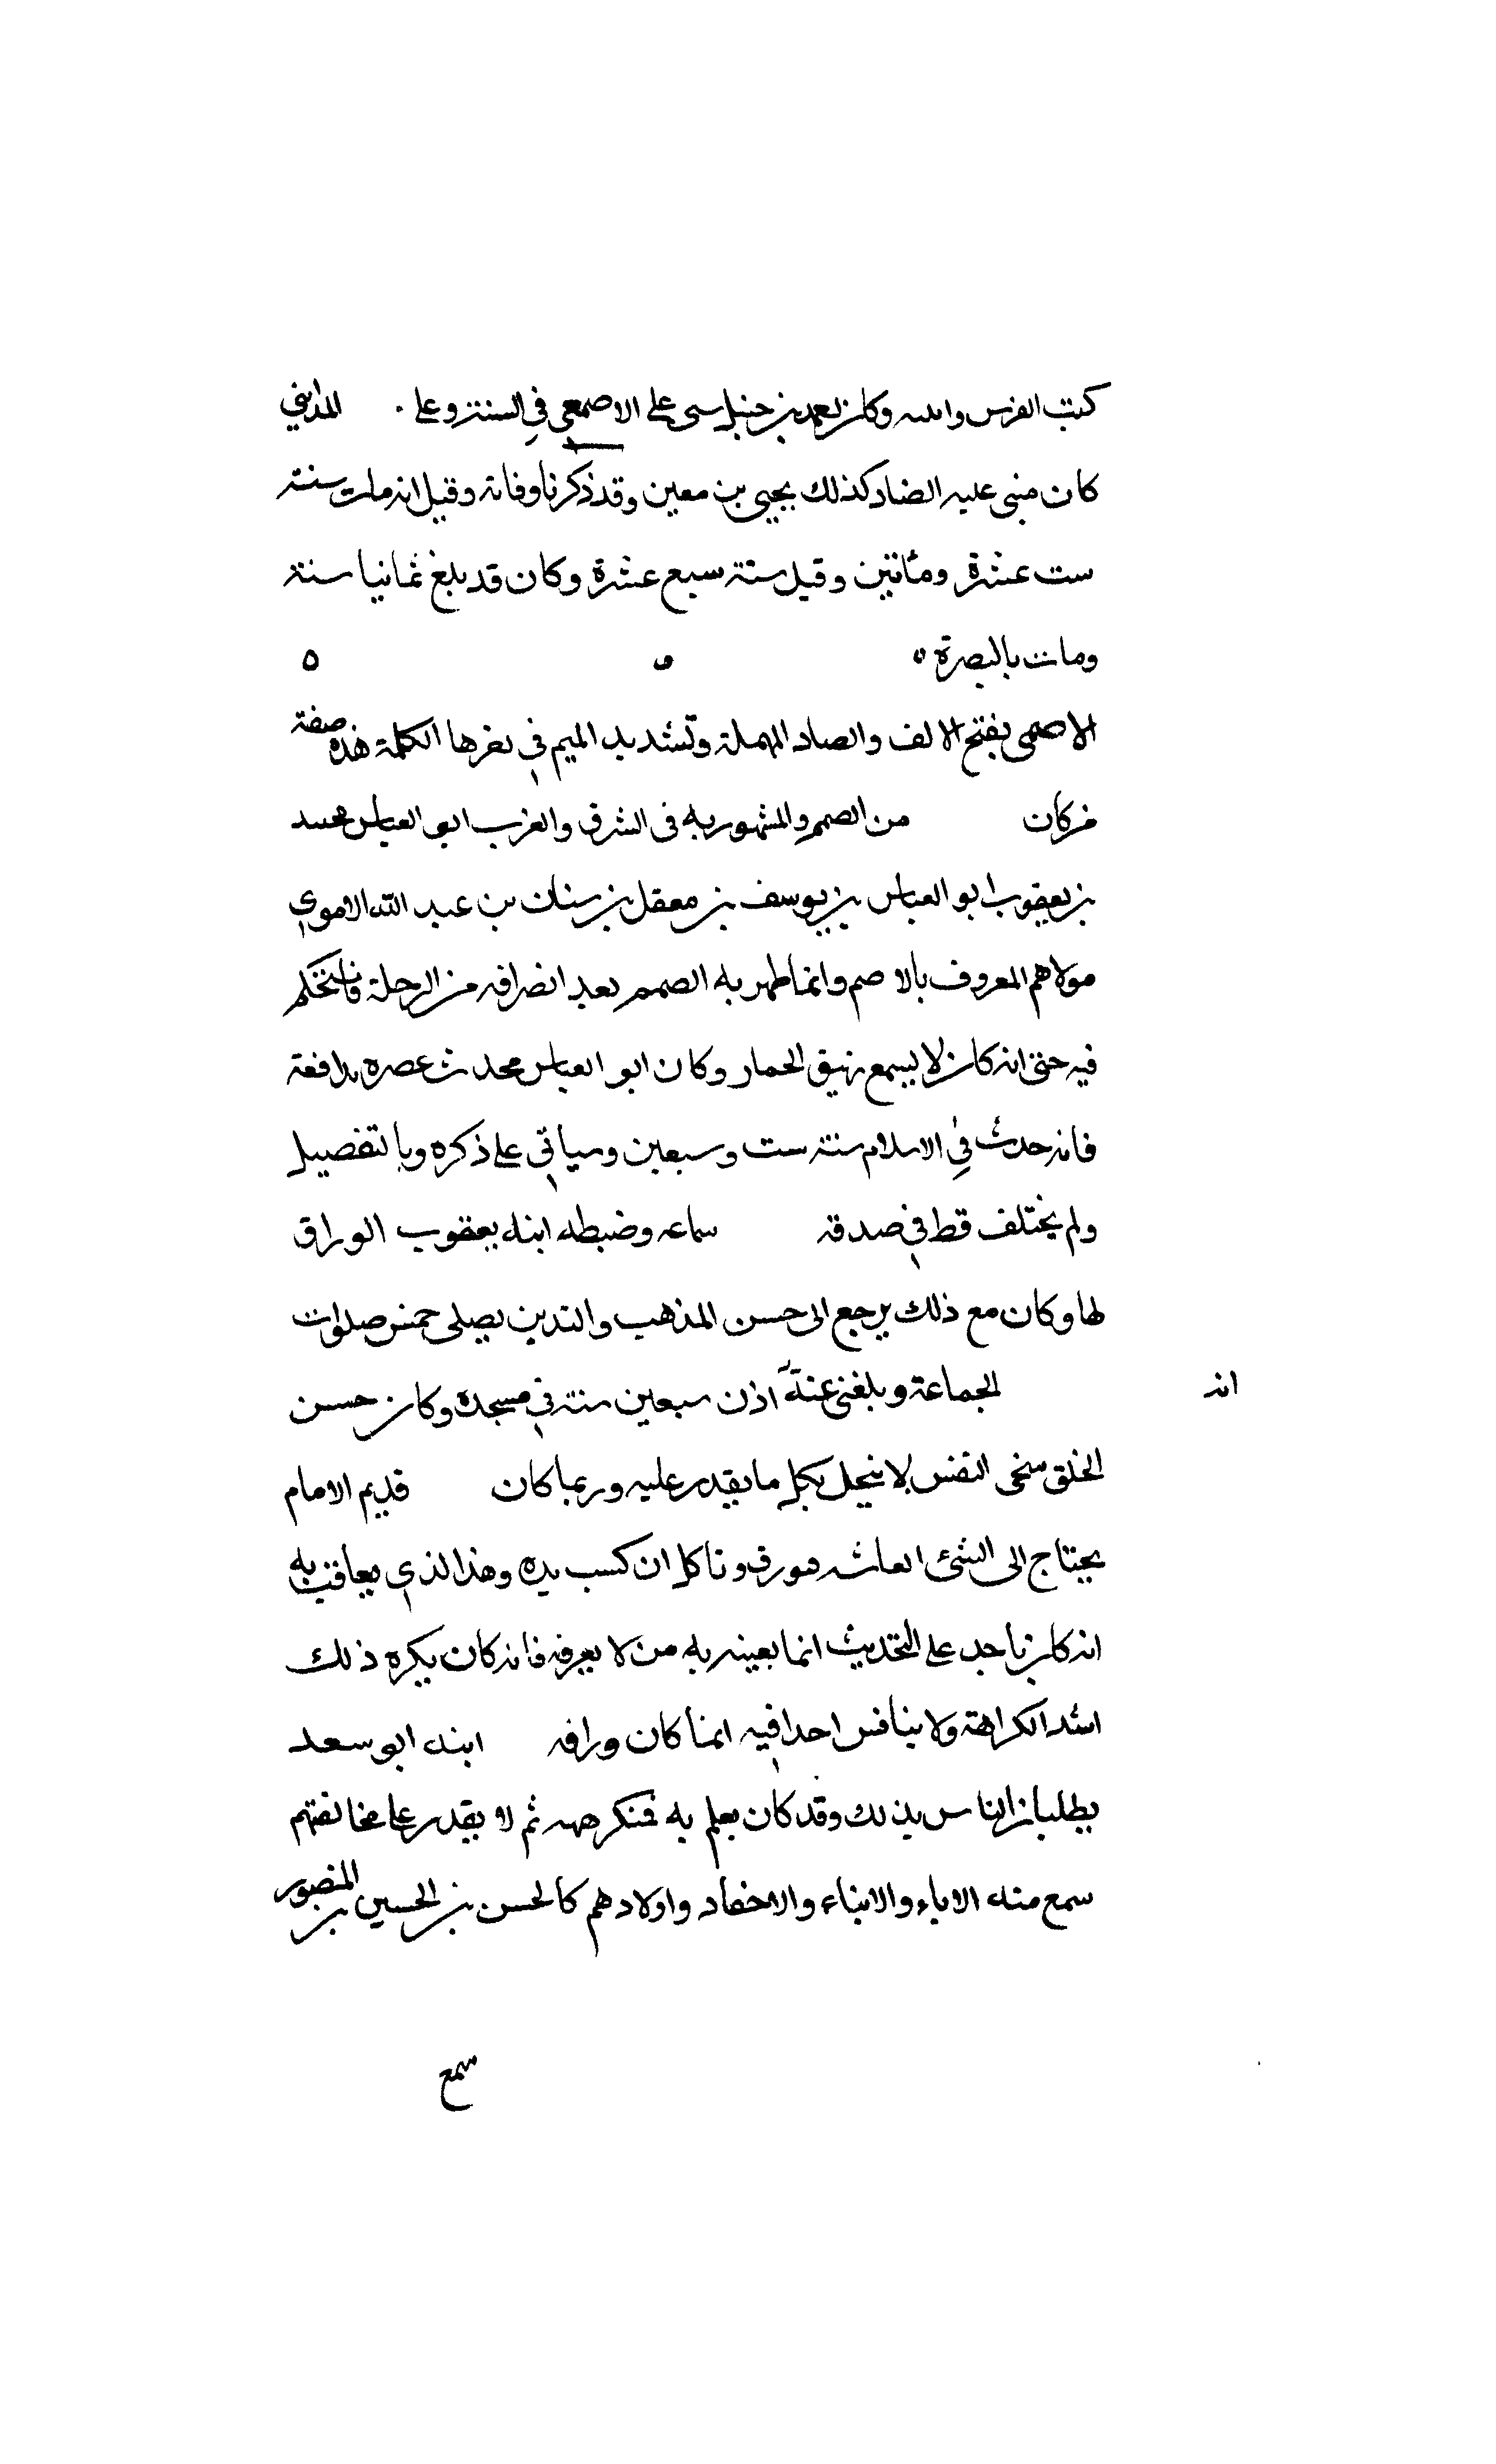 كتب الفرس وكان احمد بن حنبل على الاصمعي في السنة وعلى المدايني
كان مبنى عليه الضاد كذلك يحيى بن معين وقد ذكرنا وفاته وقيل انه مات سنة
ست عشرة ومائتين وقيل سنة سبع عشرة وكان قد بلغ ثمانيا سنة
ومات بالبصرة ه ه ه
الاصمى بفتح الالف والصاد المهملة وتشديد الميم في الكلمة هذه صفة
من كان من الصمم والمشهور به فى الشرق والغرب ابو العباس محمد
بن يعقوب ابو العباس بن يوسف بن معقل بن سنان بن عبد الله الاموي
مولاهم المعروف بالاصم وانما ظهر به الصمم بعد انصرافه من الرحلة فاستحكم
فيه حتى انه كان لا يسمع نهيق الحمار وكان ابو العباس محدث عصره بدافعة
فانه حدث في الاسلام سنة ست وسبعين وسياتي على ذكره وبا تفصيل
ولم يختلف قط في صدقه سماعه وضبطه ابنه يعقوب الوراق
لها وكان مع ذلك يرجع الى حسن المذهب والتدين يصلى خمس صلوات
الجماعة وبلغنى عنه انه اذن سبعين سنة في مسجده وكان حسن
الخلق سخى النفس لا يبخل بكل ما يقدر عليه وربما كان قديم الامام
يحتاج الى الشئ فيورق وياكل ان كسب يده وهذا الذي يعاقب به
انه كان ياخذ على التحديث انما بعينه به من لا يعرفه فانه كان يكره ذلك
اشد الكراهة ولا يناقش احدا فيه انما كان وراقه ابنه ابو سعد
يطلبان الناس بذلك وقد كان يعلم به فنكرهه ثم لا يقدر على مخالفتهم
سمع منه الاباء والابناء والاحفاد واولادهم كالحسن بن الحسين بن المنصور
سمع